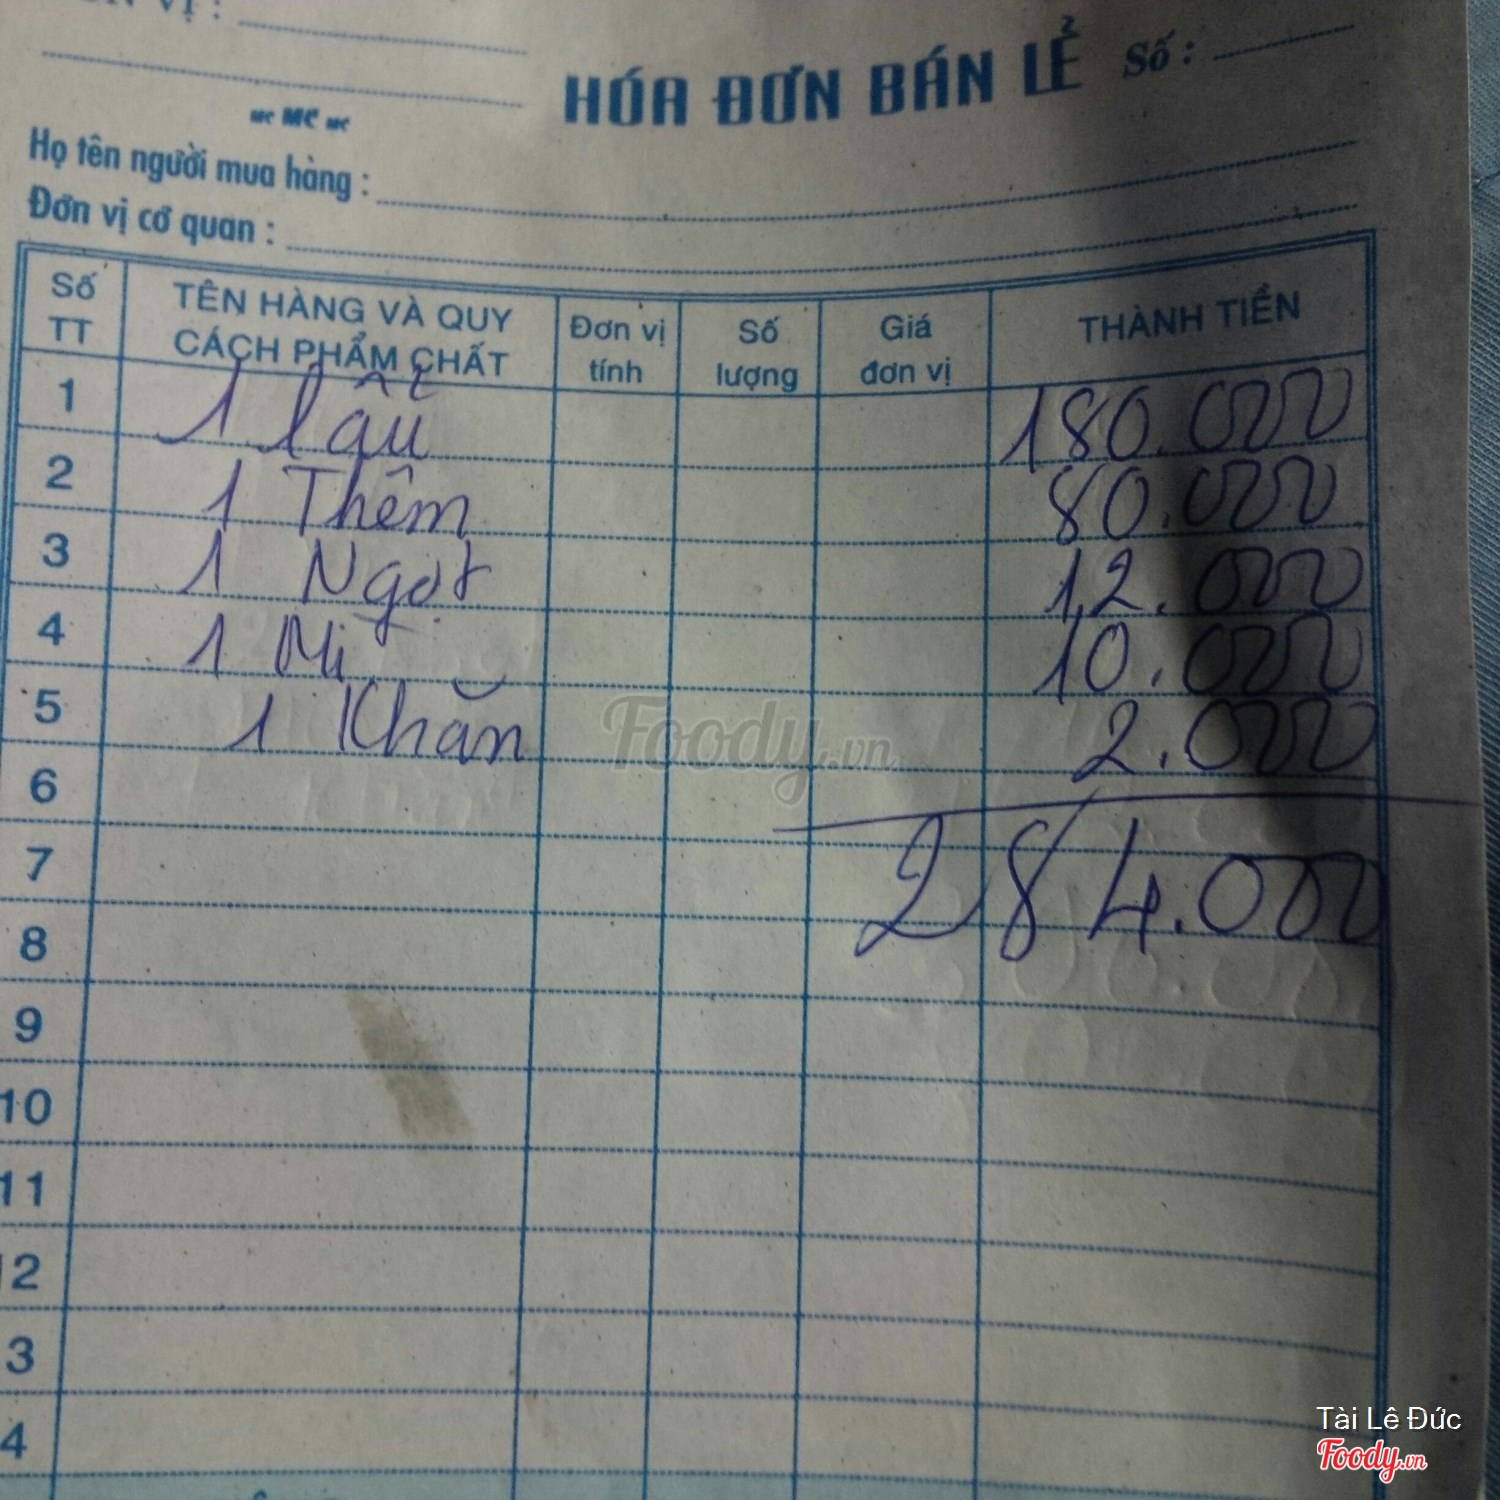 VỊ :
HÓA ĐƠN BÁN LẺ Số :
MC
Họ tên người mua hàng :
Đơn vị cơ quan :
Số TT TÊN HÀNG VÀ QUY CÁCH PHẨM CHẤT Đơn vị tính Số lượng Giá đơn vị THÀNH TIỀN
1 1 lẩu 180.000
2 1 Thêm 80.000
3 1 Ngọt 12.000
4 1 Mì 10.000
5 1 Khăn 2.000
6
7 284.000
8
9
10
11
12
3
4
Foody.vn
Tài Lê Đức
Foody.vn